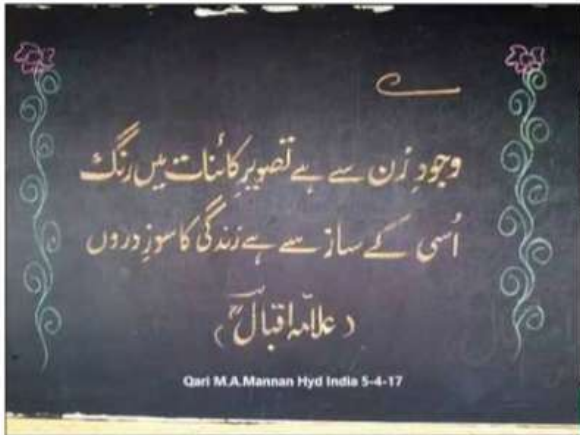 وجودِ زن سے ہے تصویرِ کائنات میں رنگ
اُسی کے ساز سے ہے زندگی کا سوزِ دروں
(علامہ اقبالؒ)
Qari M.A.Mannan Hyd India 5-4-17